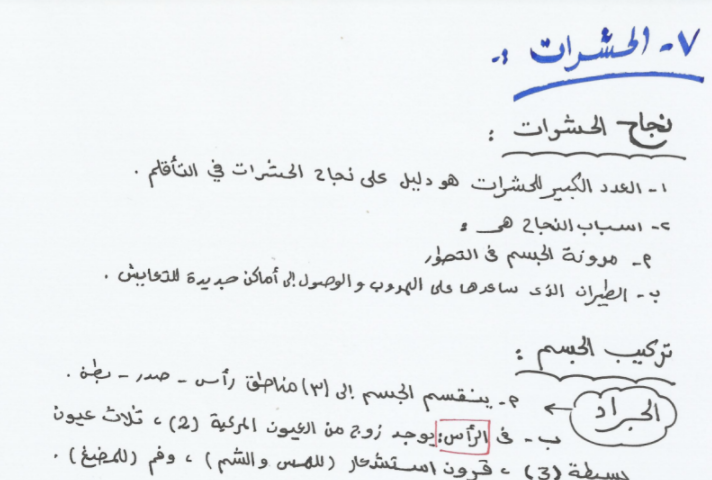 ٧- الحشرات :-
نجاح الحشرات :
١- العدد الكبير للحشرات هو دليل على نجاح الحشرات في التأقلم .
٢- اسباب النجاح هى :
أ- مرونة الجسم فى التطور
ب- الطيران الذى ساعدها على الهروب والوصول إلى أماكن جديدة للتعايش .
تركيب الجسم :
الجراد ← أ- ينقسم الجسم إلى (٣) مناطق رأس - صدر - بطن .
ب- فى الرأس: يوجد زوج من العيون المركبة (2) ، ثلاث عيون
بسيطة (3) ، قرون استشعار (للمس والشم) ، وفم (للمضغ) .